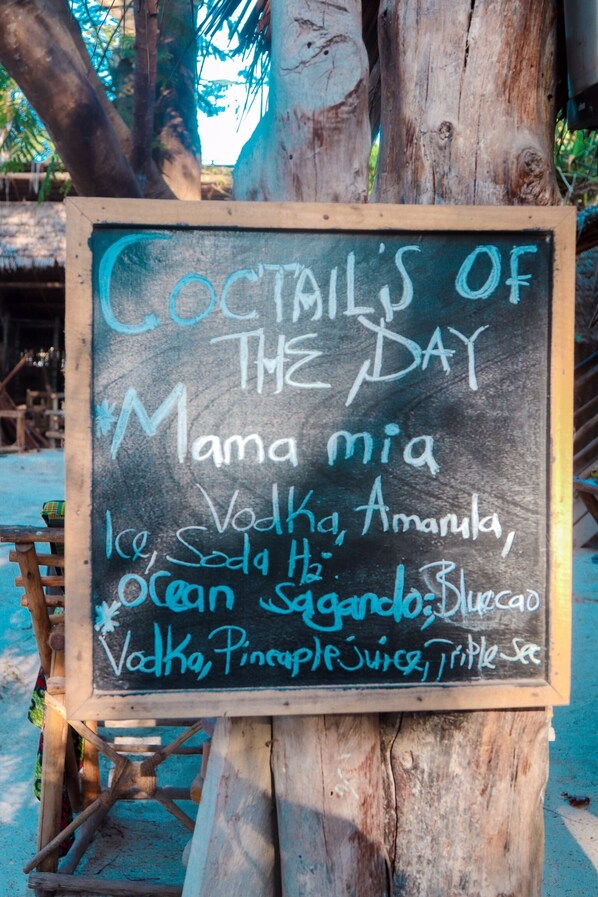 COCTAIL'S OF
THE DAY
* Mama mia
Vodka, Amarula,
Ice, Soda H2-
* Ocean sagando; Bluecao
Vodka, Pineapple juice, Triple sec